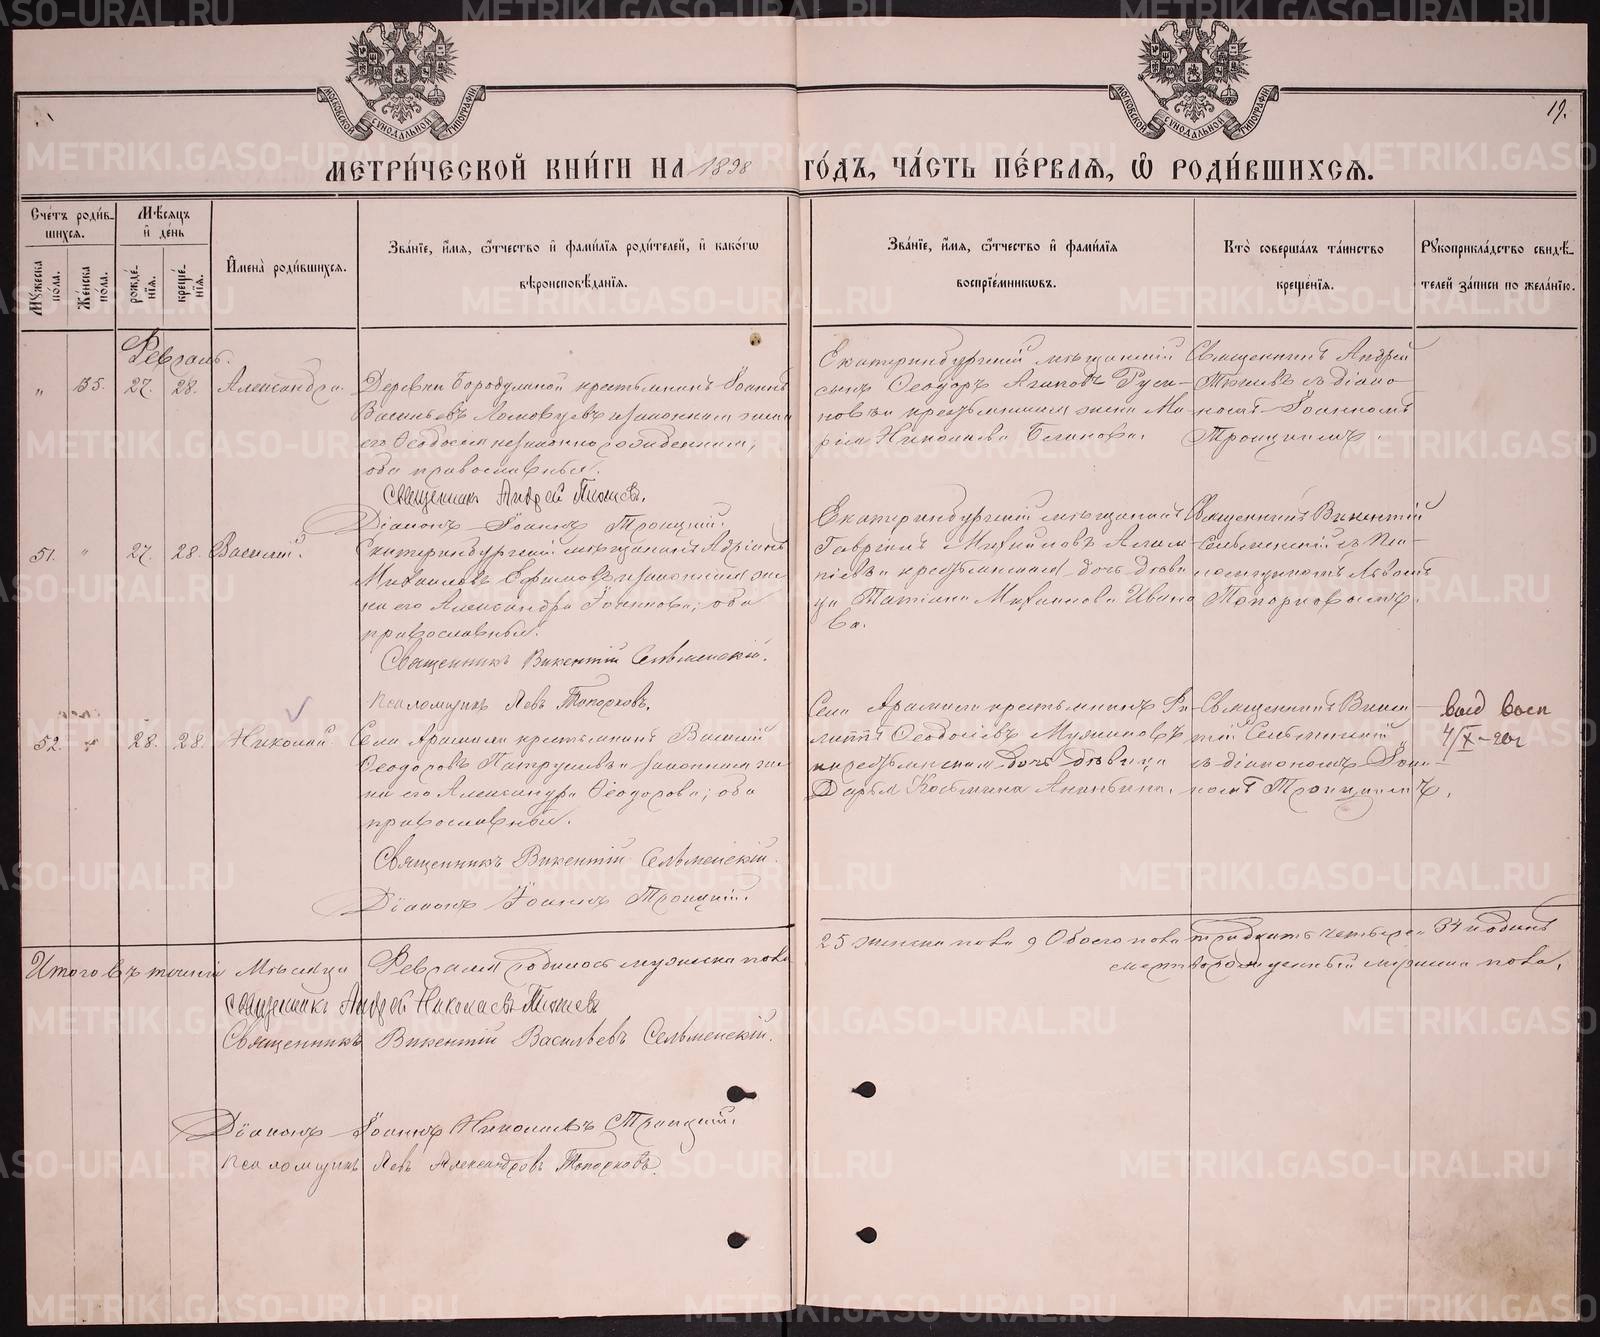 МОСКОВСКОЙ СѴНОДАЛЬНОЙ ТИПОГРАФІИ
МОСКОВСКОЙ СѴНОДАЛЬНОЙ ТИПОГРАФІИ
19.
МЕТРИ́ЧЕСКОЙ КНИ́ГИ НА 1898 ГО́ДЪ, ЧА́СТЬ ПЕ́РВАѦ, Ѡ РОДИ́ВШИХСѦ.
Сче́тъ роди́в-
шихсѧ.
Мꙋ́жеска по́ла.
Же́нска по́ла.
Мѣ́сѧцъ
и҆ де́нь
рожде́нїѧ.
креще́нїѧ.
И҆мена̀ роди́вшихсѧ.
Зва́нїе, и҆́мѧ, ѻ҆́тчество и҆ фами́лїѧ роди́телей, и҆ како́гѡ
вѣроисповѣ́данїѧ.
Зва́нїе, и҆́мѧ, ѻ҆́тчество и҆ фами́лїѧ
воспрїе́мникѡвъ.
Кто̀ соверша́лъ та́инство
креще́нїѧ.
Рꙋкоприкла́дство свидѣ́-
телей за́писи по жела́нїю.
Февраль.
" 35. 27. 28. Александра.
Деревни Бородулиной крестьянинъ Іоаннъ
Васильевъ Ломовцевъ и законная жена
его Ѳеодосія незаконнорожденная,
оба православные.
Священникъ Андрей
Діаконъ Іоаннъ Троицкій.
Екатеринбургскій мѣщанскій
сынъ Ѳеодоръ Руса-
новъ и крестьянская жена Ма-
рія Николаева
Священникъ Андрей
съ діако-
номъ Іоанномъ
Троицкимъ.
51. " 27. 28. Василій.
Екатеринбургскій мѣщанинъ Адріанъ
Михаиловъ Ефимовъ и законная же-
на его Александра Іоаннова; оба
православные.
Священникъ Викентій Сельменскій.
Псаломщикъ Левъ Топорковъ.
Екатеринбургскій мѣщанинъ
Гавріилъ Михаиловъ
и крестьянская дочь дѣви-
ца Татіана Михаилова Ивано-
ва.
Священникъ Викентій
Сельменскій съ Пса-
ломщикомъ Львомъ
Топорковымъ.
52. " 28. 28. Николай
Села Арамили крестьянинъ Василій
Ѳеодоровъ Патрушевъ и законная же-
на его Александра Ѳеодорова; оба
православные.
Священникъ Викентій Сельменскій.
Діаконъ Іоаннъ Троицкій.
Села Арамили крестьянинъ Фи-
липпъ Ѳеодосіевъ
и крестьянская дочь дѣвица
Дарья Косьмина Ананьина.
Священникъ Викен-
тій Сельменскій
съ діакономъ Іоан-
номъ Троицкимъ.
Итого въ теченіи мѣсяца Февраля родилось мужеска пола
25 женска пола 9 Обоего пола тридцать четыре 34 и одинъ
мертворожденный мужска пола.
Священникъ Андрей Николаевъ
Священникъ Викентій Васильевъ Сельменскій.
Діаконъ Іоаннъ Николаевъ Троицкій.
Псаломщикъ Левъ Александровъ Топорковъ.
METRIKI.GASO-URAL.RU